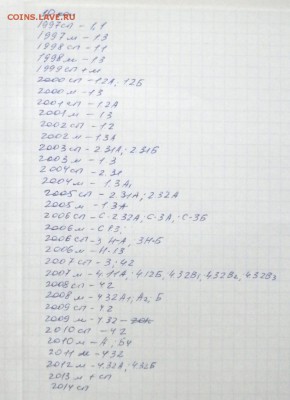 COINS.LAVE.RU
10 коп
1997сп - 1.1
1997м - 1.3
1998 сп - 1.1
1998 м - 1.3
1999 сп + м
2000 сп - 1.2А, 1.2Б
2000 м - 1.3
2001 сп - 1.2А
2001 м - 1.3
2002 сп - 1.2
2002 м - 1.3А
2003 сп - 2.31А; 2.31Б
2003 м - 1.3
2004 сп - 2.31
2004 м - 1.3А1
2005 сп - 2.31А; 2.32А
2005 м - 1.3
2006 сп - С-2.32А; С-3А; С-3Б
2006 м - С 1.3;
2006 сп - 3 Н-А, 3Н-Б
2006 м - Н-1.3
2007 сп - 3; 4.2
2007 м - 4.11А; 4.12Б, 4.32В1, 4.32В2, 4.32В3
2008 сп - 4.2
2008 м - 4.32А1, А2; Б
2009 сп - 4.2
2009 м - 4.32
2010 сп - 4.2
2010 м - А; Б4
2011 м - 4.32
2012 м - 4.32А, 4.32Б
2013 м + сп
2014 сп